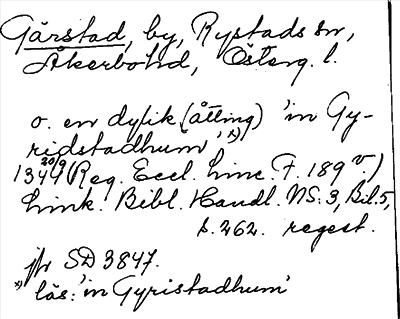 Gärstad, by, Rystads sn,
Åkerbohd, Österg. l.
o. en dylik (åtting) 'in Gy-
ridstadhum', x)
1344 20/9 (Reg. Eccl. Linc. F. 189 v.)
Link. Bibl. Handl. NS. 3, Bil. 5,
s. 262. regest.
jfr SD 3847.
x) läs: 'in Gyristadhum'